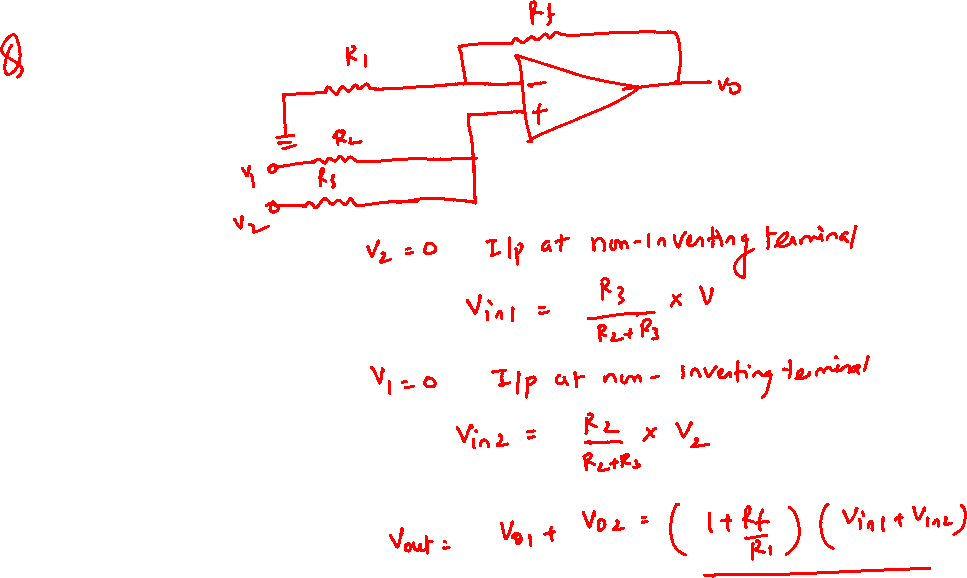 Q
Rf
R1
V0
-
+
R2
V1
R3
V2
V2 = 0 I/p at non-Inverting terminal
Vin1 = R3 / R2+R3 × V
V1 = 0 I/p at non-Inverting terminal
Vin2 = R2 / R2+R3 × V2
Vout = V01 + V02 = (1 + Rf / R1) (Vin1 + Vin2)